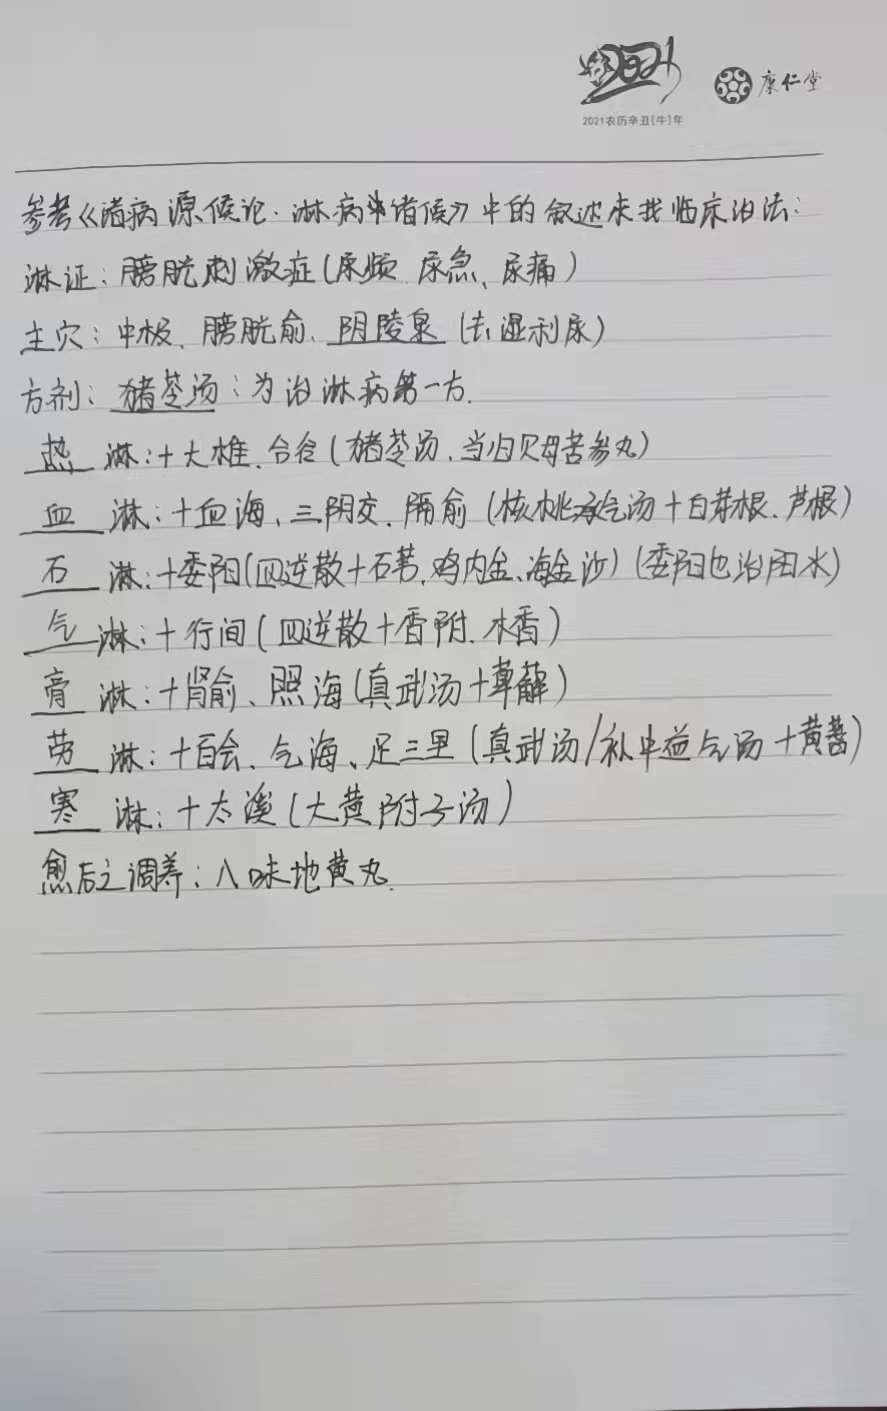 2021
康仁堂
2021农历辛丑[牛]年
参考《诸病源候论·淋病诸候》中的叙述来找临床治法:
淋证:膀胱刺激症(尿频、尿急、尿痛)
主穴:中极、膀胱俞、阴陵泉(去湿利尿)
方剂:猪苓汤:为治淋病第一方.
热 淋:+大椎、合谷(猪苓汤、当归贝母苦参丸)
血 淋:+血海、三阴交、隔俞(核桃承气汤+白茅根、芦根)
石 淋:+委阳(四逆散+石苇、鸡内金、海金沙)(委阳也治闭水)
气 淋:+行间(四逆散+香附、木香)
膏 淋:+肾俞、照海(真武汤+萆薢)
劳 淋:+百会、气海、足三里(真武汤/补中益气汤+黄蓍)
寒 淋:+太溪(大黄附子汤)
愈后之调养:八味地黄丸.